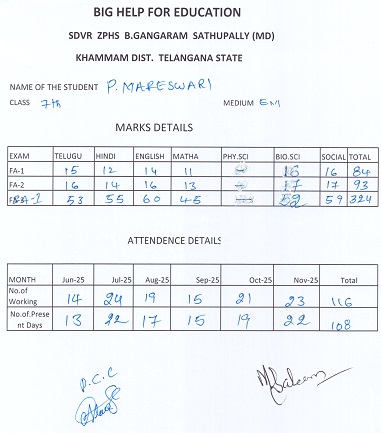 BIG HELP FOR EDUCATION
SDVR ZPHS B.GANGARAM SATHUPALLY (MD)
KHAMMAM DIST. TELANGANA STATE
NAME OF THE STUDENT P. MARESWARI
CLASS 7th MEDIUM EM
MARKS DETAILS
EXAM TELUGU HINDI ENGLISH MATHA PHY.SCI BIO.SCI SOCIAL TOTAL
FA-1 15 12 14 11 16 16 84
FA-2 16 14 16 13 17 17 93
53 55 60 45 52 59 324
ATTENDENCE DETAILS
MONTH Jun-25 Jul-25 Aug-25 Sep-25 Oct-25 Nov-25 Total
No.of Working 14 24 19 15 21 23 116
No.of.Present Days 13 22 17 15 19 22 108
D.C.C